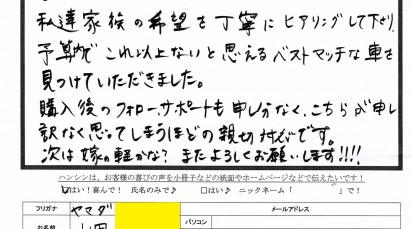 私達家族の希望を丁寧にヒアリングして下さり、
予算内でこれ以上ないと思えるベストマッチな車を
見つけていただきました。
購入後のフォロー、サポートも申し分なく、こちらが申し
訳なく思ってしまうほどの親切対応です。
次は嫁の軽かな? またよろしくお願いします!!!!
ハンシンは、お客様の喜びの声を小冊子などの紙面やホームページなどで伝えたいです!
はい!喜んで! 氏名のみで♪ □はい♪ ニックネーム「 」で!
フリガナ ヤマダ メールアドレス
お名前 山田 パソコン